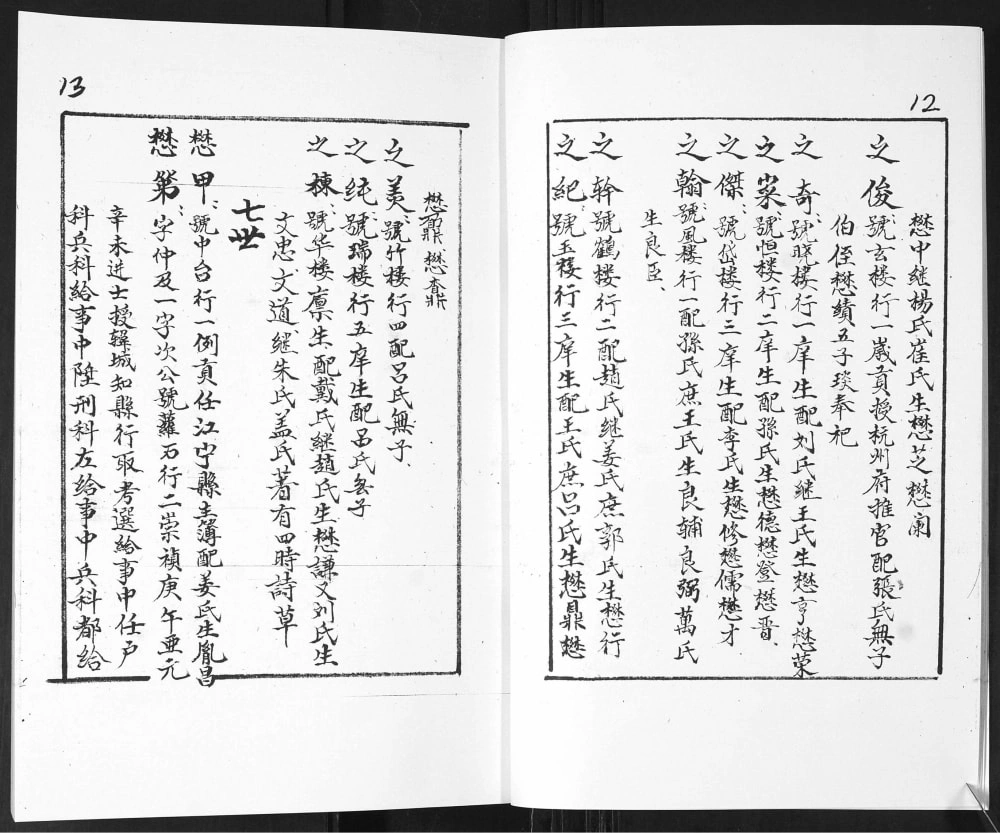 12
懋中继楊氏崔氏生懋芝懋蘭
之俊號玄楼行一歲貢授杭州府推官配張氏無子
伯侄懋績五子琰奉祀
之奇號曉楼行一庠生配刘氏继王氏生懋亨懋荣
之寀號恒楼行二庠生配孫氏生懋德懋登懋晋
之傑號岱楼行三庠生配李氏生懋修懋儒懋才
之翰號凤楼行一配孫氏庶王氏生良輔良弼萬氏
生良臣
之幹號鶴楼行二配趙氏继姜氏庶郭氏生懋行
之紀號玉楼行三庠生配王氏庶呂氏生懋鼎懋
13
懋鼐懋鼒
之美號竹楼行四配呂氏無子
之纯號瑞楼行五庠生配呂氏無子
之楝號华楼廪生配戴氏继趙氏生懋謙又刘氏生
文忠文道继朱氏盖氏著有四時詩草
七世
懋甲號中台行一例貢任江宁縣主簿配姜氏生胤昌
懋第字仲及一字次公號蘿石行二崇禎庚午亜元
辛未进士授韓城知縣行取考選給事中任户
科兵科給事中陞刑科左給事中兵科都給